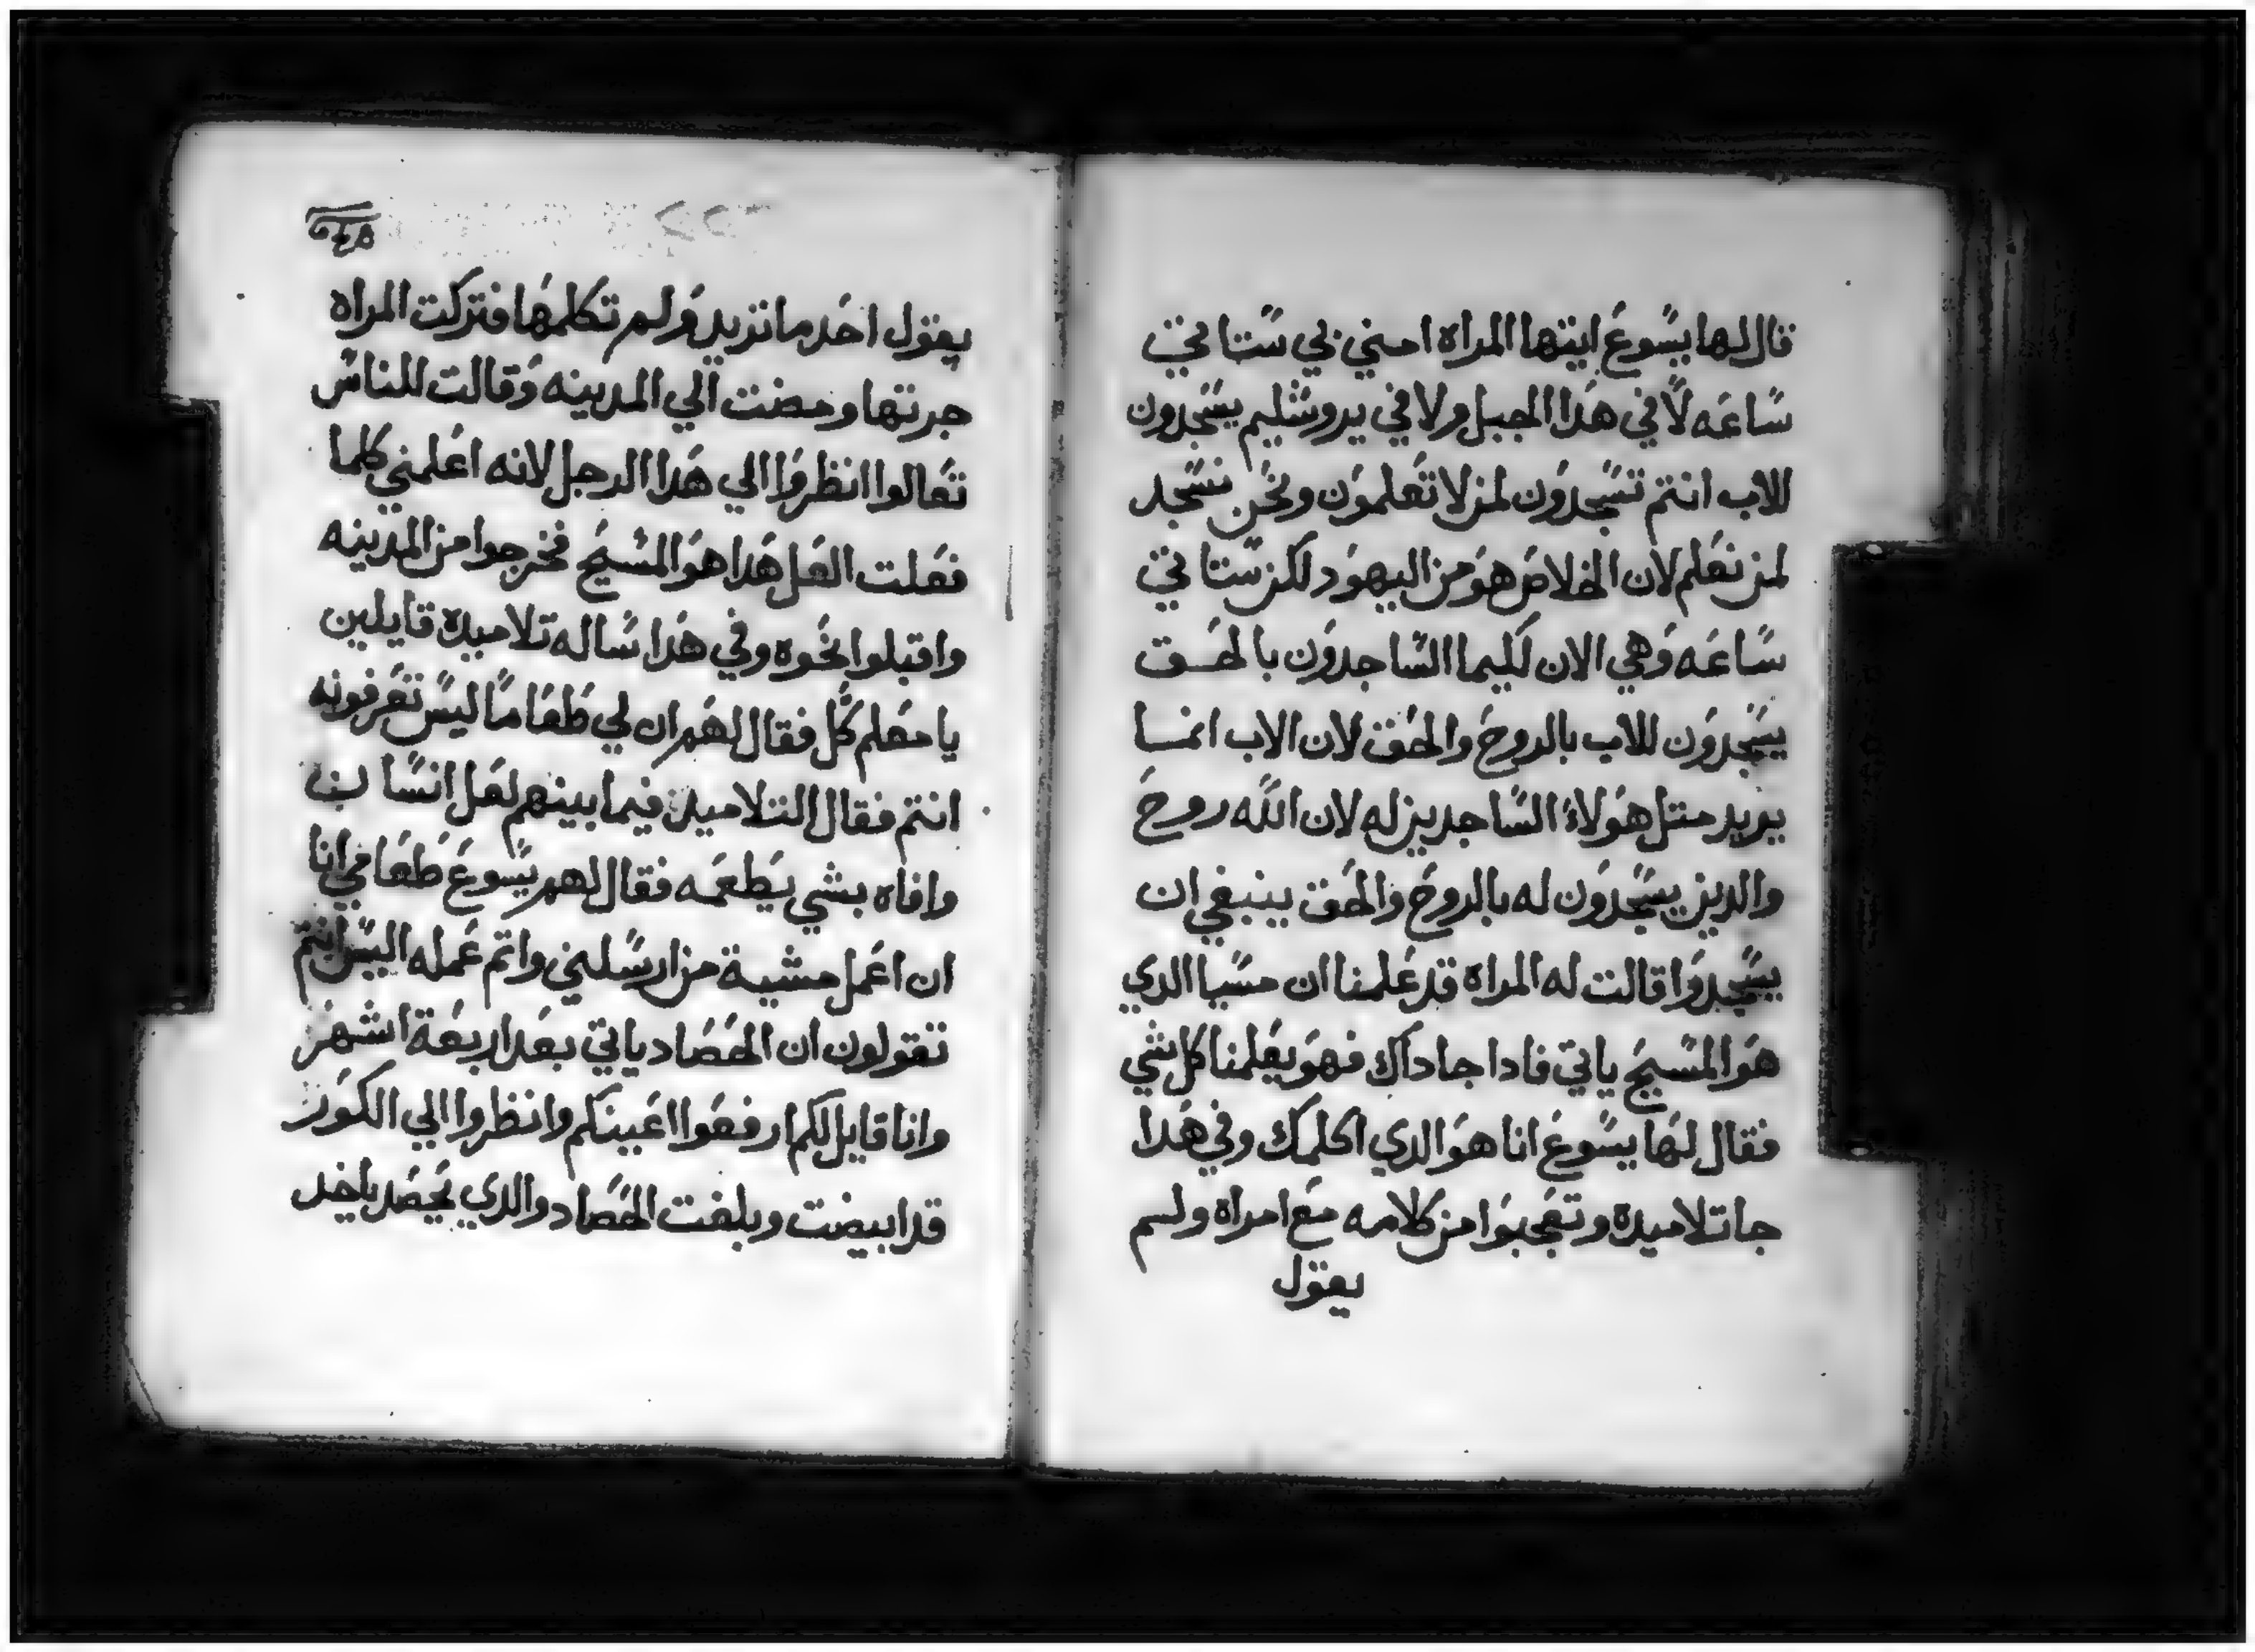 قال لها يسوع ايتها المراه امني بي ستاتي
ساعه لا في هدا الجبل ولا في يروشليم يسجدون
للاب انتم تسجدون لمن لا تعلمون ونحن نسجد
لمن نعلم لان الخلاص هو من اليهود لكن ستاتي
ساعه وهي الان لكيما الساجدون بالحق
يسجدون للاب بالروح والحق لان الاب انما
يريد متل هولاء الساجدين له لان الله روح
والدين يسجدون له بالروح والحق ينبغي ان
يسجدوا قالت له المراه قد علمنا ان مسيا الدي
هو المسيح ياتي فادا جا داك فهو يعلمنا كل شي
فقال لها يسوع انا هو الدي اكلمك وفي هدا
جا تلاميده وتعجبوا من كلامه مع امراه ولم
يقول
يقول احد ما تريد ولم تكلمها فتركت المراه
جرتها ومضت الي المدينه وقالت للناس
تعالوا انظروا الي هدا الرجل لانه اعلمني كلما
فعلت العل هدا هو المسيح فخرجوا من المدينه
واقبلوا نحوه وفي هدا ساله تلاميده قايلين
يا معلم كل فقال لهم ان لي طعاما ليس تعرفونه
انتم فقال التلاميد فيما بينهم لعل انسان
وافاه بشي يطعمه فقال لهم يسوع طعامي انا
ان اعمل مشية من ارسلني واتم عمله اليس انتم
تقولون ان الحصاد ياتي بعد اربعة اشهر
وانا قايل لكم ارفعوا اعينكم وانظروا الي الكور
قد ابيضت وبلغت الحصاد والدي يحصد ياخد